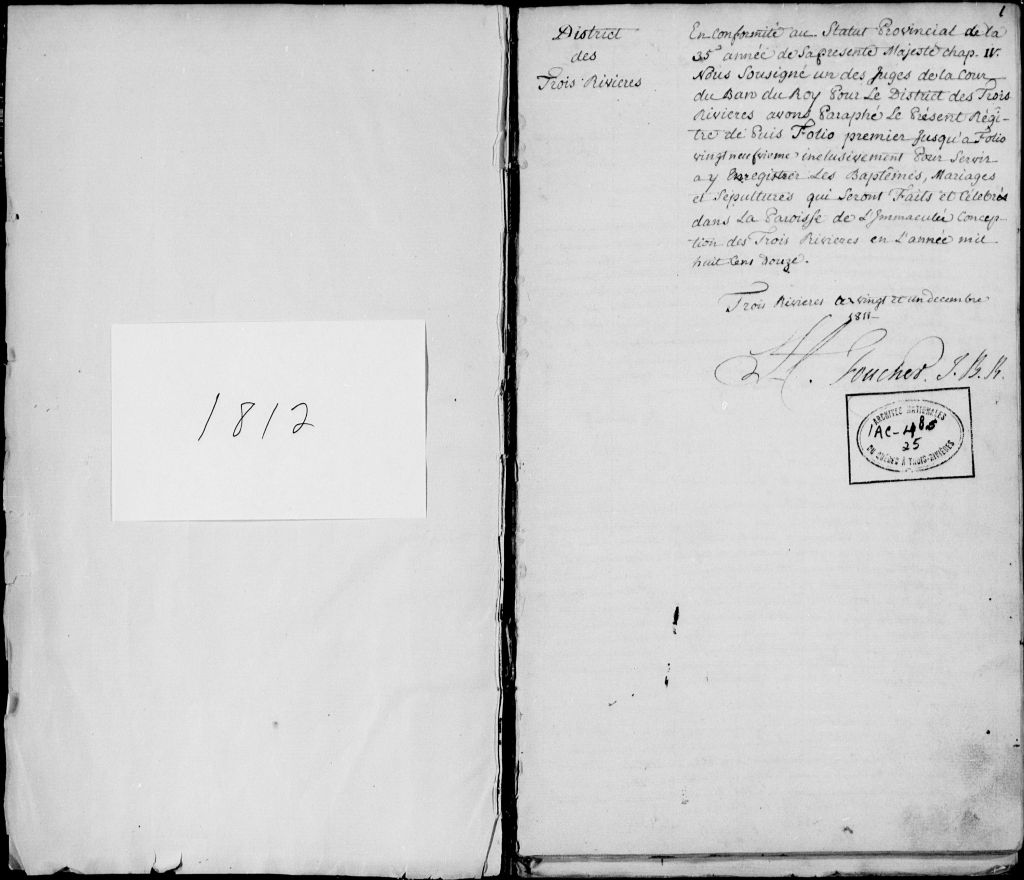 1812
1
District
des
Trois Rivieres
En Conformité au Statut Provincial de la
35e année de Sa presente Majesté Chap. IV.
Nous Sousigné un des Juges de la Cour
du Banc du Roy Pour Le District des Trois
Rivieres avons Paraphé Le Présent Régi-
tre de Puis Folio premier Jusqu'a Folio
vingt inclusivement Pour Servir
a y Enregistrer Les Baptêmes, Mariages
et Sépultures qui Seront Faits et Célebrés
dans La Paroisse de L'Immaculée Concep-
tion des Trois Rivieres en L'année mil
huit Cens Douze.
Trois Rivieres ce vingt et un decembre
1811
L C. Foucher. J. B. R.
ARCHIVES NATIONALES
1AC-485
25
DU QUÉBEC À TROIS-RIVIÈRES